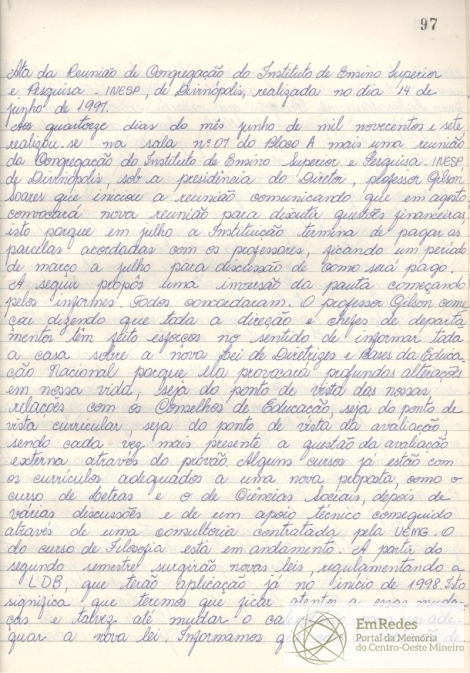 97
Ata da Reunião de Congregação do Instituto de Ensino Superior
e Pesquisa - INESP, de Divinópolis, realizada no dia 14 de
junho de 1997.
Aos quartorze dias do mês junho de mil novecentos e sete
realizou-se na sala nº 07 do Bloco A mais uma reunião
da Congregação do Instituto de Ensino Superior e Pesquisa - INESP,
de Divinópolis, sob a presidência do Diretor, professor Gilson
Soares que iniciou a reunião comunicando que em agosto
convocará nova reunião para discutir questões financeiras,
isto porque em julho a Instituição termina de pagar as
parcelas acordadas com os professores, ficando um período
de março a julho para discussão de como será pago.
A seguir propôs uma inversão da pauta começando
pelos informes. Todos concordaram. O professor Gilson come
çou dizendo que toda a direção e chefes de departa
mentos têm feito esforços no sentido de informar toda
a casa sobre a nova Lei de Diretrizes e Bases da Educa-
ção Nacional porque ela provocará profundas alterações
em nossa vida, seja do ponto de vista das nossas
relações com os Conselhos de Educação, seja do ponto de
vista curricular, seja do ponto de vista da avaliação,
sendo cada vez mais presente a questão da avaliação
externa através do provão. Alguns cursos já estão com
os currículos adequados a uma nova proposta, como o
curso de Letras e o de Ciências Sociais, depois de
várias discussões e de um apoio técnico conseguido
através de uma consultoria contratada pela UEMG. O
do curso de Filosofia está em andamento. A partir do
segundo semestre surgirão novas leis, regulamentando a
LDB, que terão aplicação já no início de 1998. Isto
significa que teremos que ficar atentos a essas muda-
ças e talvez até mudar o
quar a nova lei. Informamos
EmRedes
Portal da Memória
do Centro-Oeste Mineiro